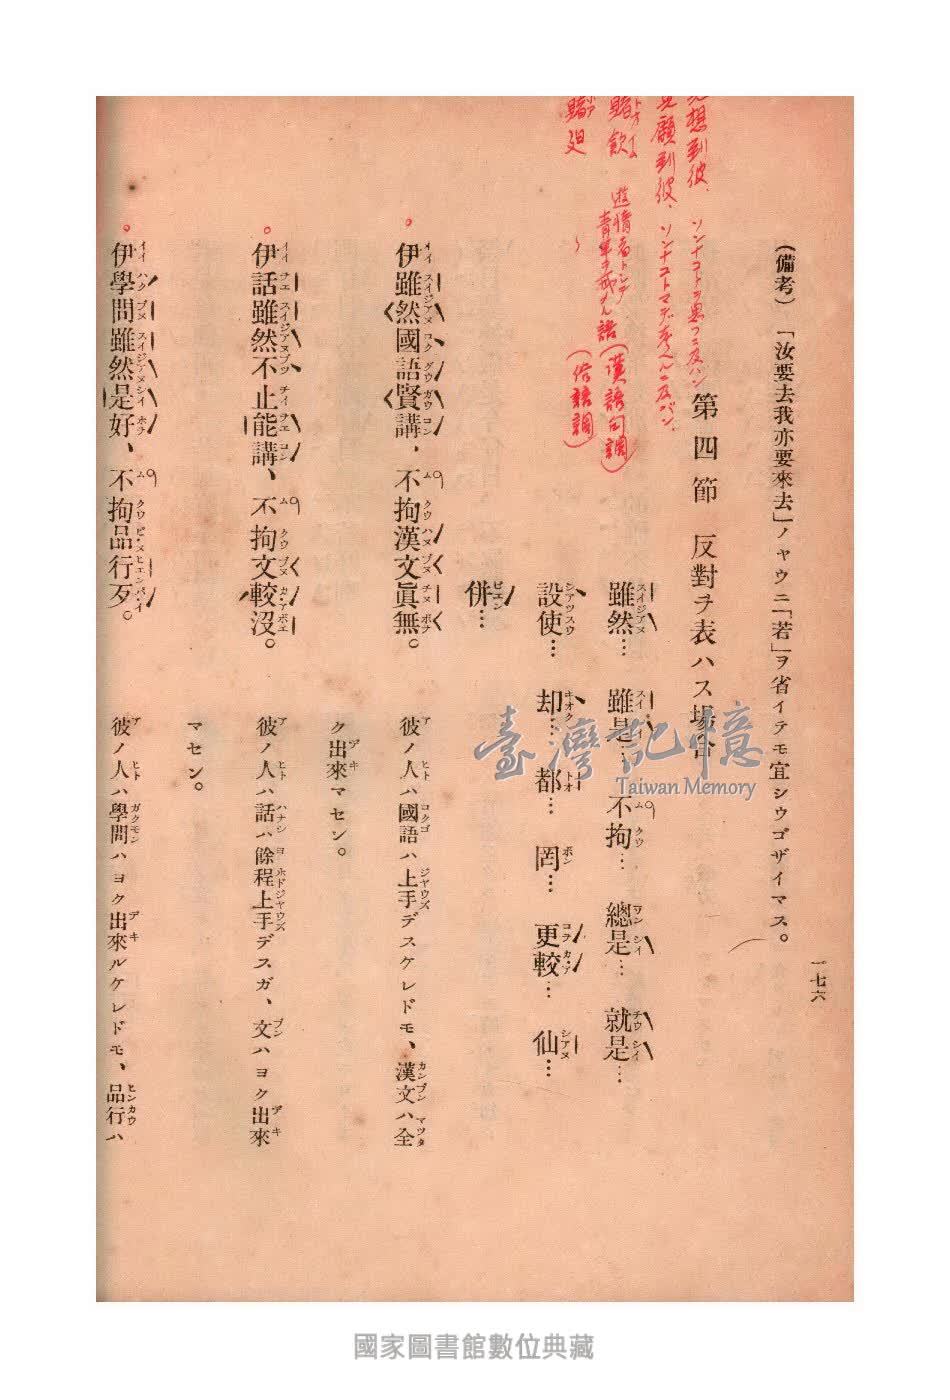 (備考)「汝要去我亦要來去」ノヤウニ「若」ヲ省イテモ宜シウゴザイマス。
一七六
第四節 反對ヲ表ハス場合
雖然… 雖是… 不拘… 總是… 就是…
設使… 却… 都… 罔… 更較… 仙…
併…
伊雖然國語賢講，不拘漢文眞無。
彼ノ人ハ國語ハ上手デスケレドモ、漢文ハ全
ク出來マセン。
伊話雖然不止能講、不拘文較沒。
彼ノ人ハ話ハ餘程上手デスガ、文ハヨク出來
マセン。
伊學問雖然是好、不拘品行歹。
彼ノ人ハ學問ハヨク出來ルケレドモ、品行ハ
想到彼、
願到彼、
飲
(漢語句調)
(俗語調)
臺灣記憶
Taiwan Memory
國家圖書館數位典藏